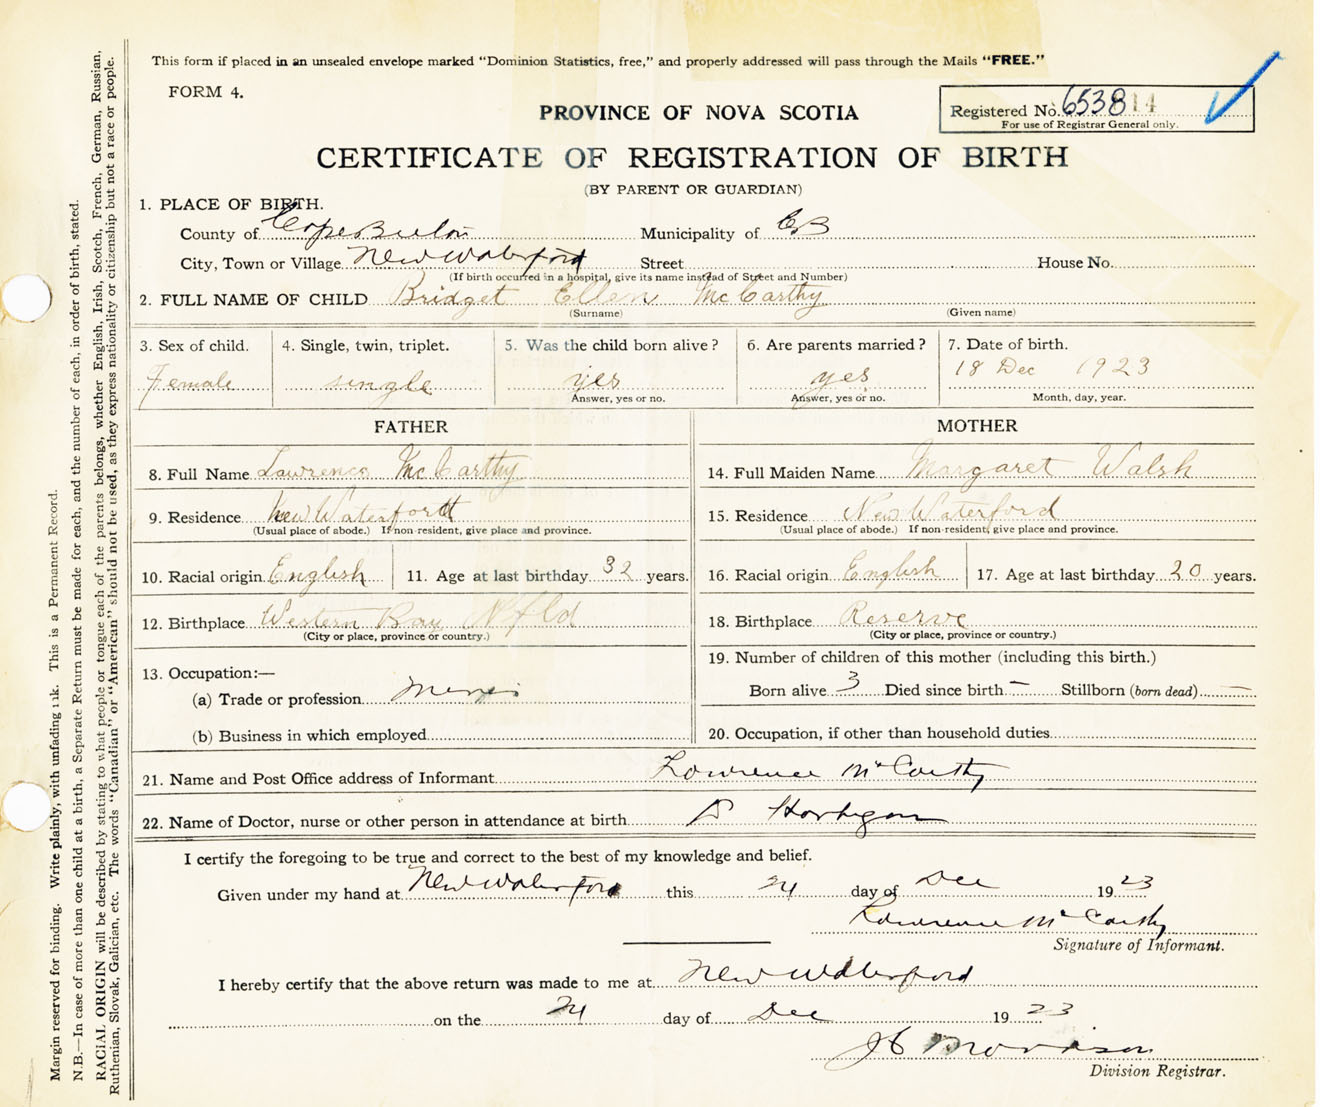 This form if placed in an unsealed envelope marked "Dominion Statistics, free," and properly addressed will pass through the Mails "FREE."
FORM 4.
PROVINCE OF NOVA SCOTIA
Registered No. 653814
For use of Registrar General only.
CERTIFICATE OF REGISTRATION OF BIRTH
(BY PARENT OR GUARDIAN)
1. PLACE OF BIRTH.
County of Cape Breton Municipality of CB
City, Town or Village New Waterford Street House No.
(If birth occurred in a hospital, give its name instead of Street and Number)
2. FULL NAME OF CHILD Bridget Ellen McCarthy
(Surname) (Given name)
3. Sex of child. 4. Single, twin, triplet. 5. Was the child born alive? 6. Are parents married? 7. Date of birth.
Female single yes yes 18 Dec 1923
Answer, yes or no. Answer, yes or no. Month, day, year.
FATHER MOTHER
8. Full Name Lawrence McCarthy 14. Full Maiden Name Margaret Walsh
9. Residence New Waterford 15. Residence New Waterford
(Usual place of abode.) If non-resident, give place and province. (Usual place of abode.) If non-resident, give place and province.
10. Racial origin English 11. Age at last birthday 32 years. 16. Racial origin English 17. Age at last birthday 20 years.
12. Birthplace Western Bay Nfld 18. Birthplace Reserve
(City or place, province or country.) (City or place, province or country.)
13. Occupation:— 19. Number of children of this mother (including this birth.)
(a) Trade or profession Born alive 3 Died since birth – Stillborn (born dead) —
(b) Business in which employed 20. Occupation, if other than household duties
21. Name and Post Office address of Informant Lawrence McCarthy
22. Name of Doctor, nurse or other person in attendance at birth Hartigan
I certify the foregoing to be true and correct to the best of my knowledge and belief.
Given under my hand at New Waterford this 24 day of Dec 1923
Lawrence McCarthy
Signature of Informant.
I hereby certify that the above return was made to me at New Waterford
on the 24 day of Dec 1923
Morrison
Division Registrar.
Margin reserved for binding. Write plainly, with unfading ink. This is a Permanent Record.
N.B.—In case of more than one child at a birth, a Separate Return must be made for each, and the number of each, in order of birth, stated.
RACIAL ORIGIN will be described by stating to what people or tongue each of the parents belongs, whether English, Irish, Scotch, French, German, Russian,
Ruthenian, Slovak, Galician, etc. The words "Canadian" or "American" should not be used, as they express nationality or citizenship but not a race or people.